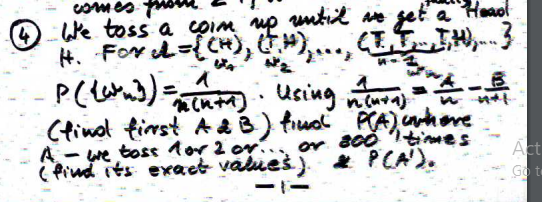 comes from
④ We toss a coin up until we get a Head
H. For Ω={(H), (T,H), ..., (T,T...,T,H),...}
ω₁ ω₂ n-1 ωₙ
P({ωₙ}) = 1/n(n+1) . Using 1/n(n+1) = A/n - B/n+1
(find first A & B) find P(A) where
A - we toss 1 or 2 or ... or 300 times
(find its exact values) & P(A').
- 1 -
Act
Go to